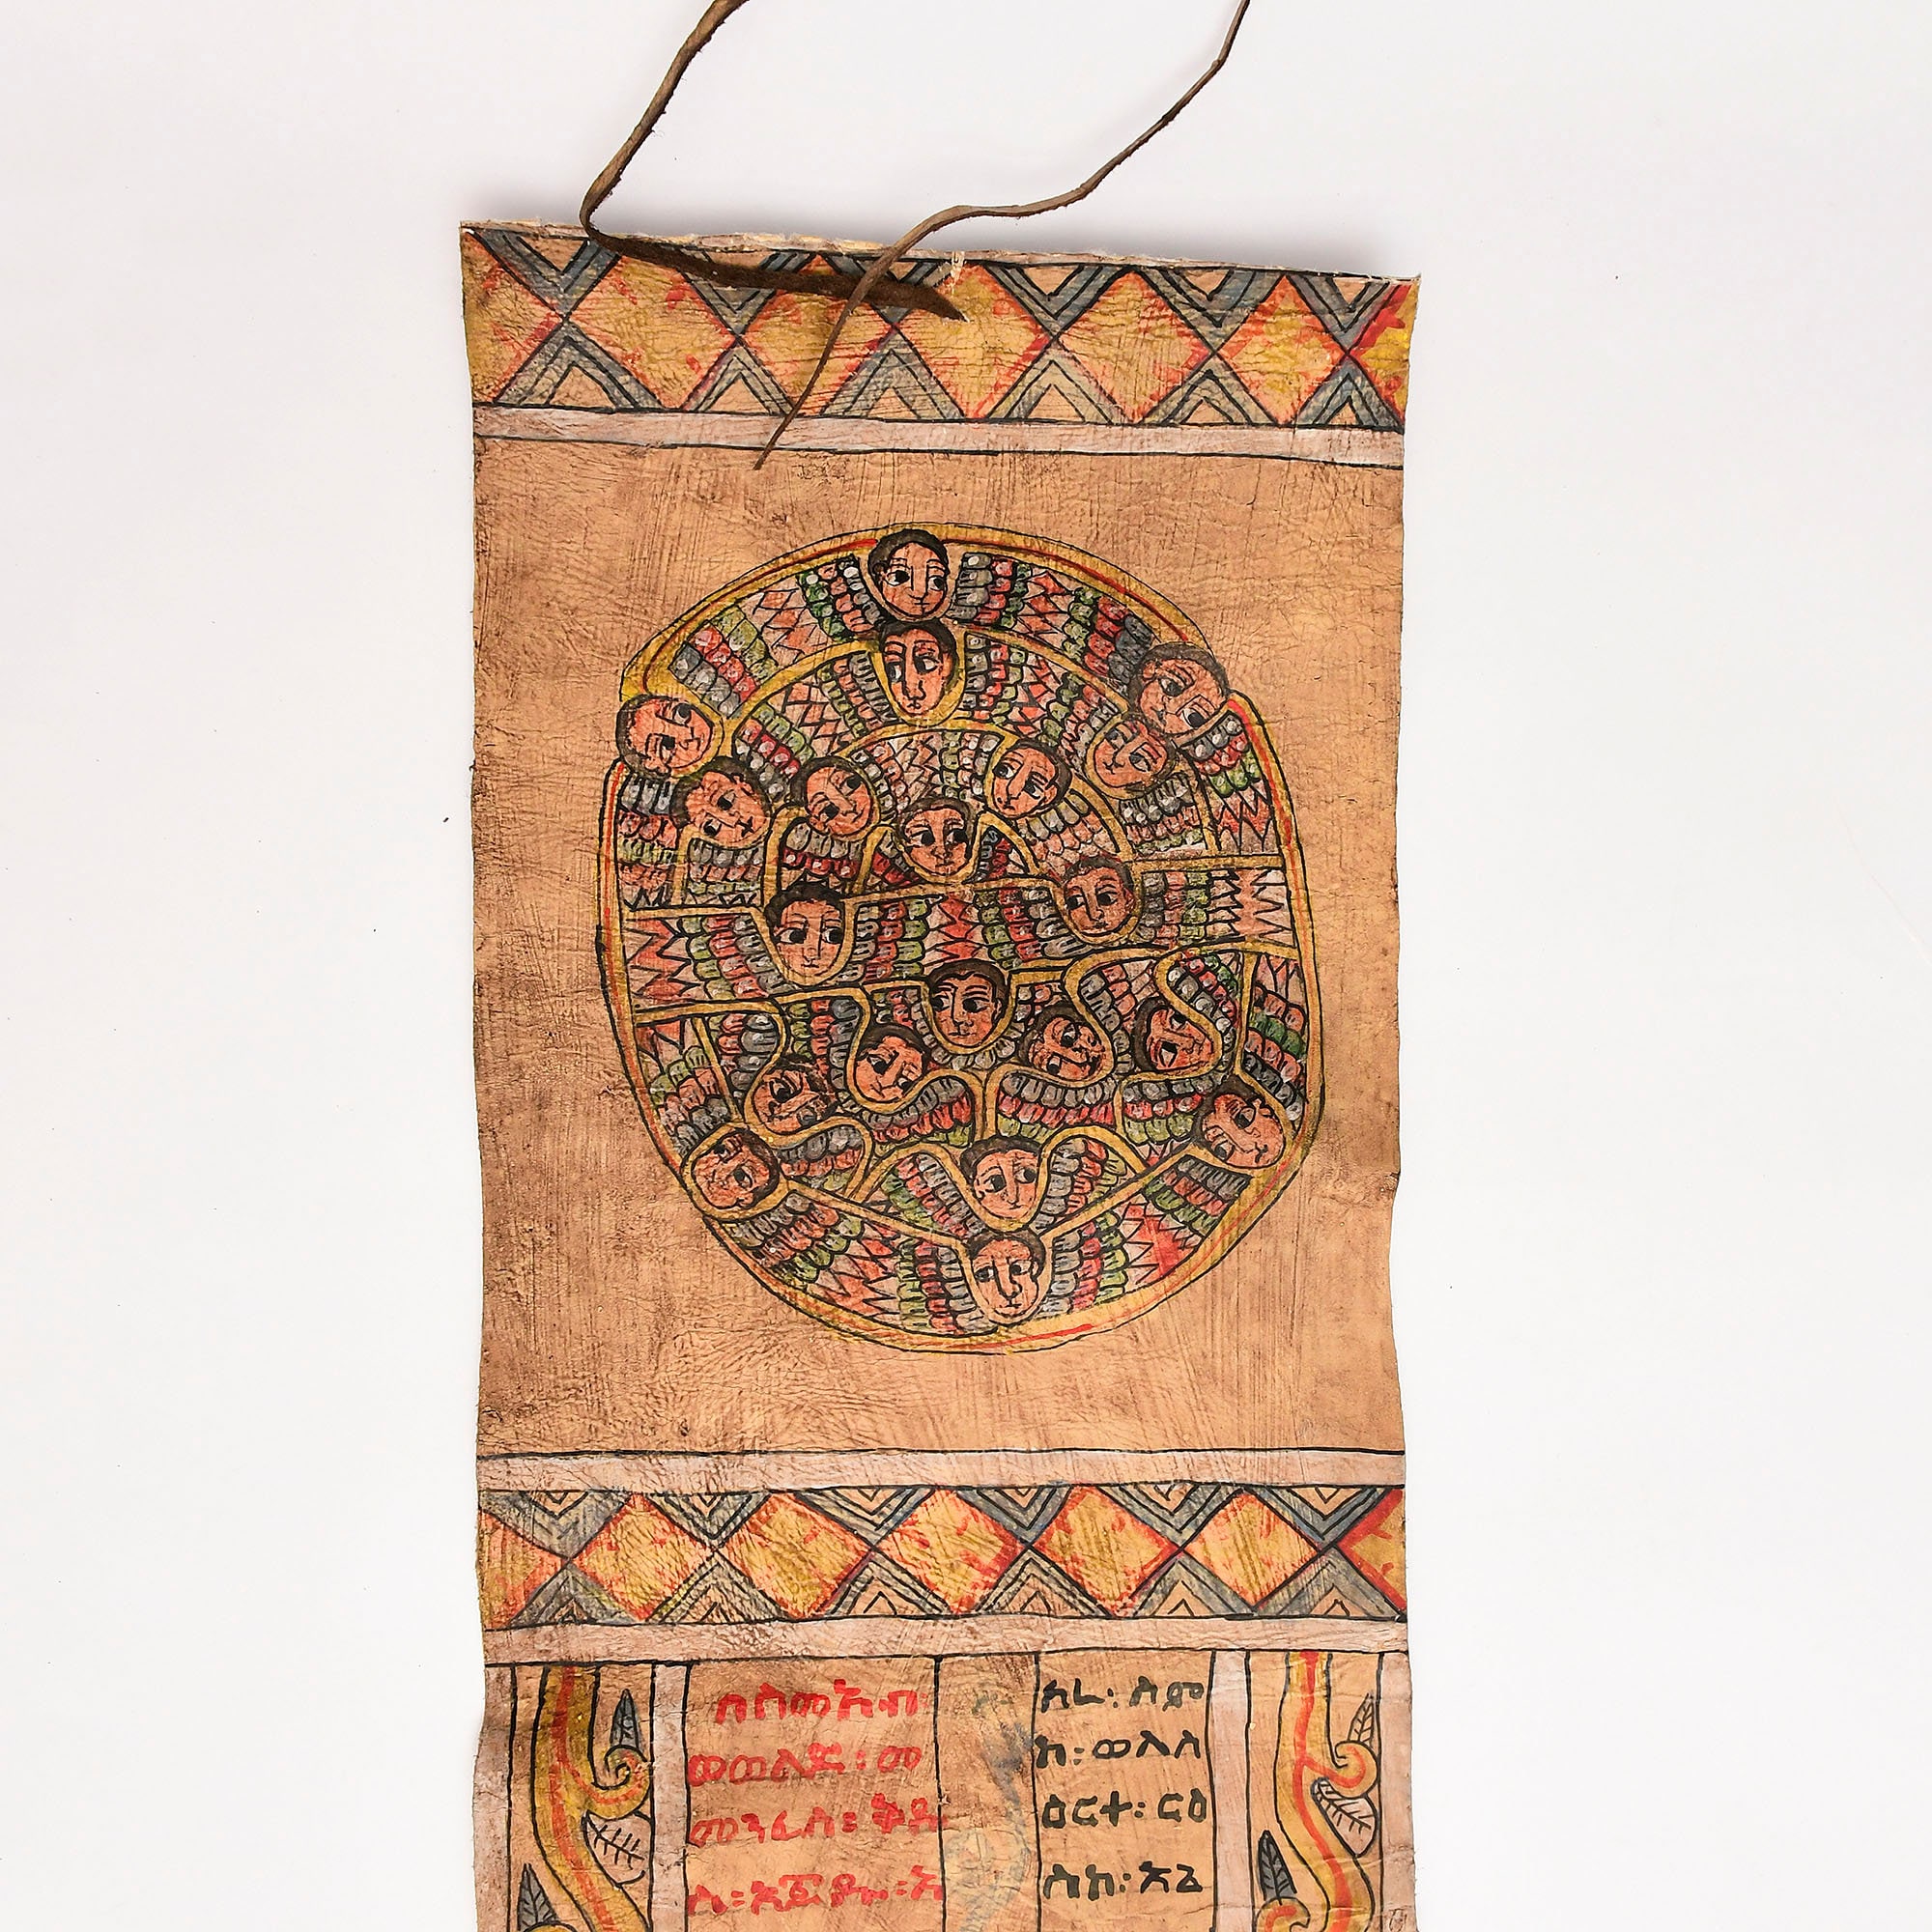 በስመ አብ
ወወልድ፡ወ
መንፈስ፡ቅዱ
ስ፡አሐዱ፡አ
ስሬ፡ስም
ከ፡ወልስ
ዐርተ፡ርዕ
ስከ፡እፈ